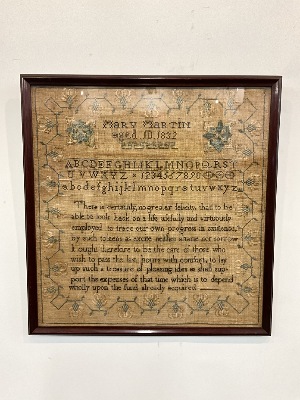 MARY MARTIN
aged 10 1832
ABCDEFGHIJKLMNOPQRST
UVWXYZ 1234567890
abcdefghijklmnopqrstuvwxyz
There is certainly no greater felicity than to be
able to look back on a life usefully and virtuously
employed to trace our own progress in existence
by such tokens as excite neither shame nor sorrow
it ought therefore to be the care of those who
wish to pass the last hours with comfort to lay
up such a treasure of pleasing ideas as shall sup
port the expenses of that time which is to depend
wholly upon the fund already acquired